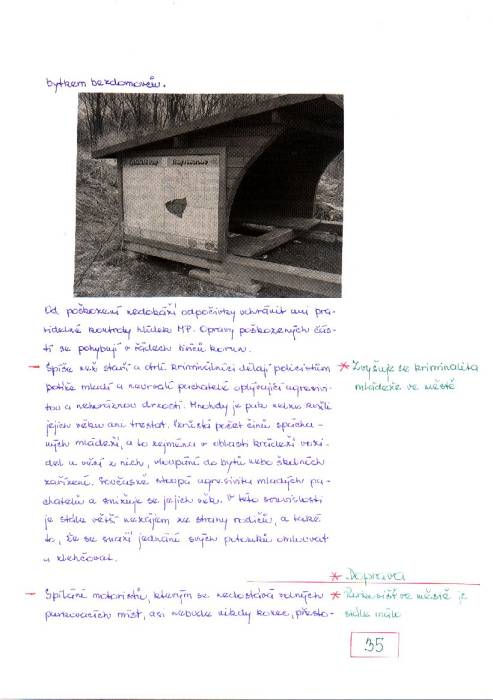 bytkem bezdomovců.
Od poškození nedokáží odpočívky uchránit ani pra-
videlné kontroly hlídek MP. Opravy poškozených čás-
tí se pohybují v řádech tisíců korun.
– Spíše než staří a otrlí kriminálníci dělají policistům
potíže mladí a nevyzrálí puchatelé oplývající agresivi-
tou a nehoráznou drzostí. Mnohdy je pak nelze kvůli
jejich věku ani trestat. Vzrůstá počet činů spácha-
ných mládeží, a to zejména v oblasti krádeží vozi-
del a věcí z nich, vloupání do bytů nebo školních
zařízení. Současně stoupá agresivita mladých pa-
chatelů a snižuje se jejich věk. V této souvislosti
je stále větší nezájem ze strany rodičů, a také
to, že se snaží jednání svých potomků omlouvat
a zlehčovat.
* Zvyšuje se kriminalita
mládeže ve městě
* Doprava
– Spílání motoristů, kterým se nedostává volných
parkovacích míst, asi nebude nikdy konec, přesto-
* Parkovišť ve městě je
stále málo
35